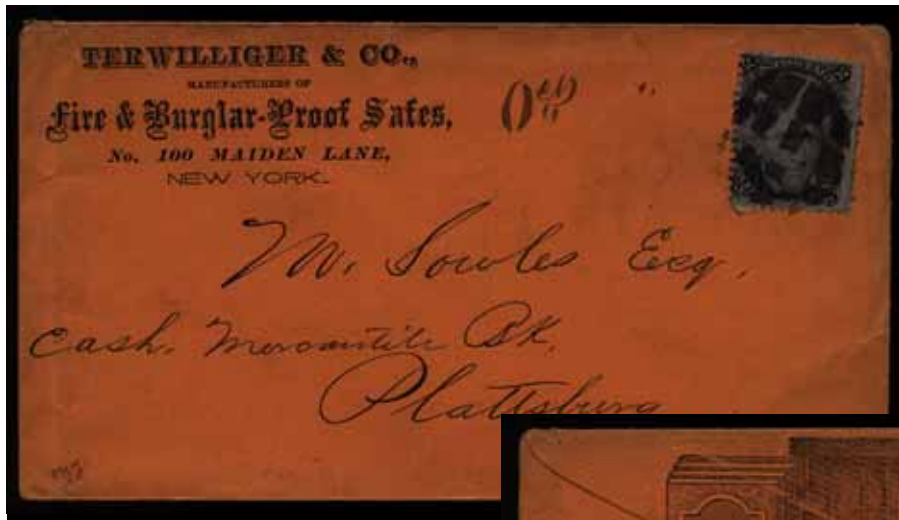 TERWILLIGER & CO.,
MANUFACTURERS OF
Fire & Burglar-Proof Safes,
No. 100 MAIDEN LANE,
NEW YORK.
M. Sowles Esq.
Cash. Mercantile BK.
Plattsburg